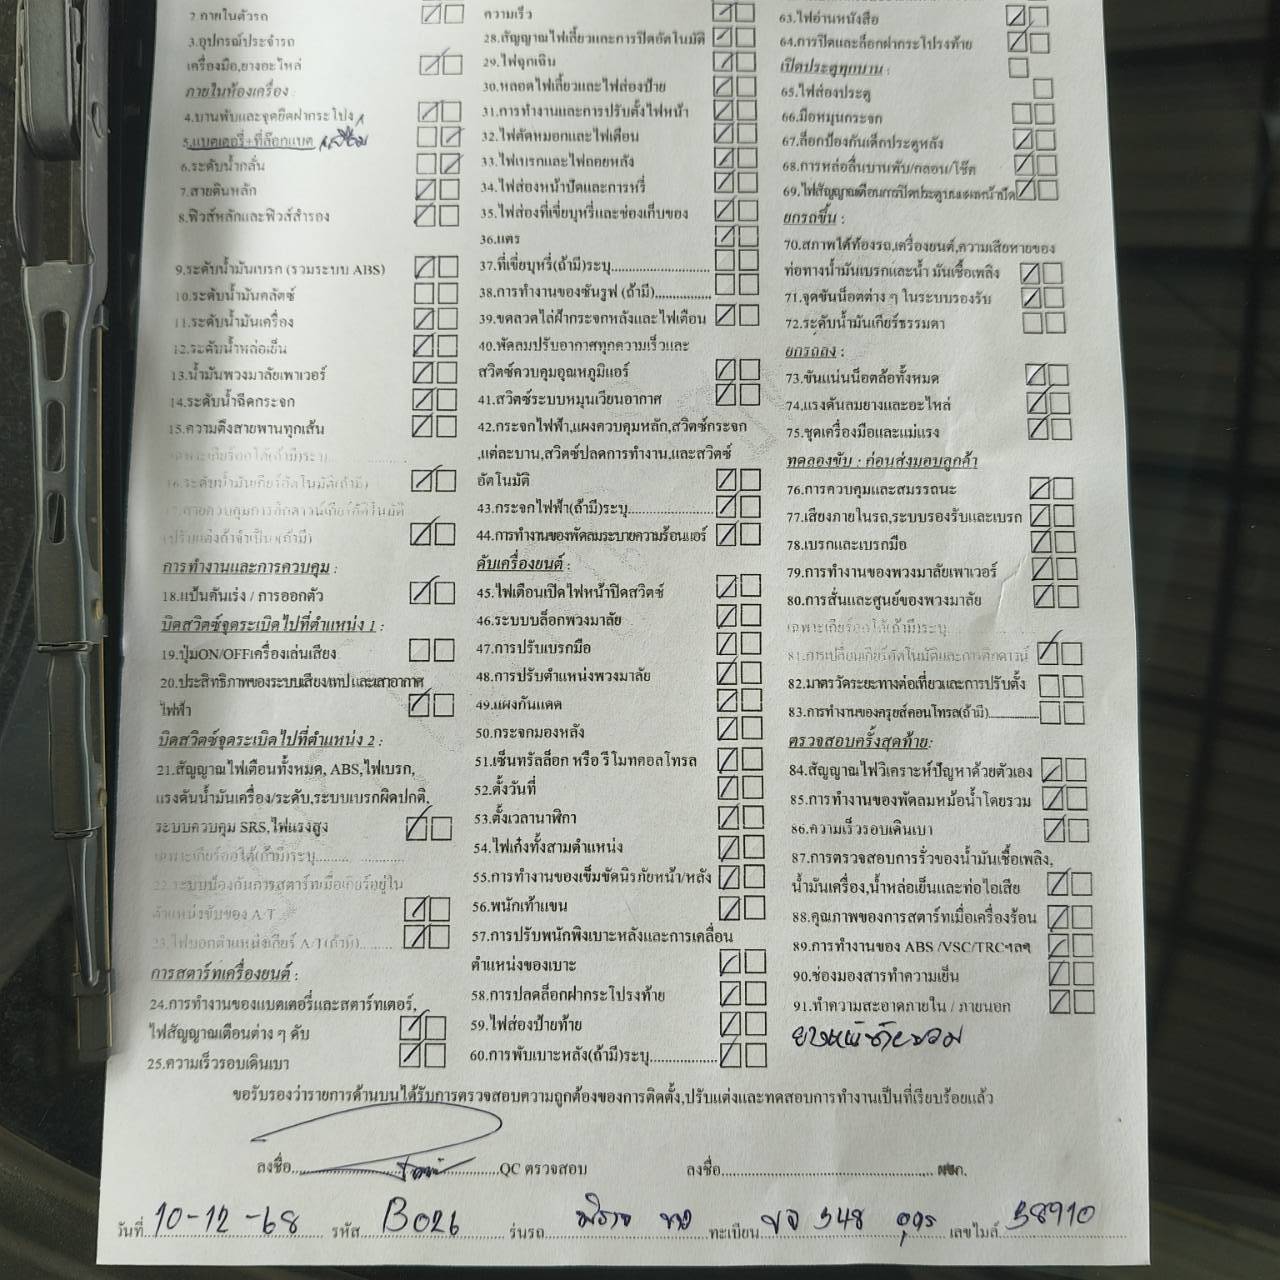 2.ภายในตัวรถ
3.อุปกรณ์ประจำรถ
เครื่องมือ,ยางอะไหล่
ภายในห้องเครื่อง :
4.บานพับและจุดยึดฝากระโปรง
5.แบตเตอรี่+ที่ล๊อกแบต เสื่อม
6.ระดับน้ำกลั่น
7.สายดินหลัก
8.ฟิวส์หลักและฟิวส์สำรอง
9.ระดับน้ำมันเบรก (รวมระบบ ABS)
10.ระดับน้ำมันคลัตช์
11.ระดับน้ำมันเครื่อง
12.ระดับน้ำหล่อเย็น
13.น้ำมันพวงมาลัยเพาเวอร์
14.ระดับน้ำฉีดกระจก
15.ความตึงสายพานทุกเส้น
เฉพาะเกียร์ออโต้(ถ้ามี)ระบุ....................
16.ระดับน้ำมันเกียร์อัตโนมัติ(ถ้ามี)
17.สายควบคุมการคิกดาวน์เกียร์อัตโนมัติ
(ปรับแต่งถ้าจำเป็น)(ถ้ามี)
การทำงานและการควบคุม :
18.แป้นคันเร่ง / การออกตัว
บิดสวิตช์จุดระเบิดไปที่ตำแหน่ง 1 :
19.ปุ่มON/OFFเครื่องเล่นเสียง
20.ประสิทธิภาพของระบบเสียง/เทป และเสาอากาศ
ไฟฟ้า
บิดสวิตช์จุดระเบิดไปที่ตำแหน่ง 2 :
21.สัญญาณไฟเตือนทั้งหมด, ABS,ไฟเบรก,
แรงดันน้ำมันเครื่อง/ระดับ,ระบบเบรกผิดปกติ,
ระบบควบคุม SRS,ไฟแรงสูง
เฉพาะเกียร์ออโต้(ถ้ามี)ระบุ....................
22.ระบบป้องกันการสตาร์ทเมื่อเกียร์อยู่ใน
ตำแหน่งขับของ A/T
23.ไฟบอกตำแหน่งเกียร์ A/T(ถ้ามี)........
การสตาร์ทเครื่องยนต์ :
24.การทำงานของแบตเตอรี่และสตาร์ทเตอร์,
ไฟสัญญาณเตือนต่าง ๆ ดับ
25.ความเร็วรอบเดินเบา
ความเร็ว
28.สัญญาณไฟเลี้ยวและการปิดอัตโนมัติ
29.ไฟฉุกเฉิน
30.หลอดไฟเลี้ยวและไฟส่องป้าย
31.การทำงานและการปรับตั้งไฟหน้า
32.ไฟตัดหมอกและไฟเตือน
33.ไฟเบรกและไฟถอยหลัง
34.ไฟส่องหน้าปัดและการหรี่
35.ไฟส่องที่เขี่ยบุหรี่และช่องเก็บของ
36.แตร
37.ที่เขี่ยบุหรี่(ถ้ามี)ระบุ....................
38.การทำงานของซันรูฟ (ถ้ามี)..............
39.ขดลวดไล่ฝ้ากระจกหลังและไฟเตือน
40.พัดลมปรับอากาศทุกความเร็วและ
สวิตซ์ควบคุมอุณหภูมิแอร์
41.สวิตซ์ระบบหมุนเวียนอากาศ
42.กระจกไฟฟ้า,แผงควบคุมหลัก,สวิตซ์กระจก
,แต่ละบาน,สวิตซ์ปลดการทำงาน,และสวิตซ์
อัตโนมัติ
43.กระจกไฟฟ้า(ถ้ามี)ระบุ....................
44.การทำงานของพัดลมระบายความร้อนแอร์
ดับเครื่องยนต์ :
45.ไฟเตือนเปิดไฟหน้าปิดสวิตซ์
46.ระบบบล็อกพวงมาลัย
47.การปรับเบรกมือ
48.การปรับตำแหน่งพวงมาลัย
49.แผงกันแดด
50.กระจกมองหลัง
51.เซ็นทรัลล็อก หรือ รีโมทคอลโทรล
52.ตั้งวันที่
53.ตั้งเวลานาฬิกา
54.ไฟเก๋งทั้งสามตำแหน่ง
55.การทำงานของเข็มขัดนิรภัยหน้า/หลัง
56.พนักเท้าแขน
57.การปรับพนักพิงเบาะหลังและการเคลื่อน
ตำแหน่งของเบาะ
58.การปลดล็อกฝากระโปรงท้าย
59.ไฟส่องป้ายท้าย
60.การพับเบาะหลัง(ถ้ามี)ระบุ...............
63.ไฟอ่านหนังสือ
64.การปิดและล็อกฝากระโปรงท้าย
เปิดประตูทุกบาน :
65.ไฟส่องประตู
66.มือหมุนกระจก
67.ล็อกป้องกันเด็กประตูหลัง
68.การหล่อลื่นบานพับ/กลอน/โช๊ค
69.ไฟสัญญาณเตือนการปิดประตูบนแผงหน้าปัด
ยกรถขึ้น :
70.สภาพใต้ท้องรถ,เครื่องยนต์,ความเสียหายของ
ท่อทางน้ำมันเบรกและน้ำ มันเชื้อเพลิง
71.จุดขันน็อตต่าง ๆ ในระบบรองรับ
72.ระดับน้ำมันเกียร์ธรรมดา
ยกรถลง :
73.ขันแน่นน็อตล้อทั้งหมด
74.แรงดันลมยางและอะไหล่
75.ชุดเครื่องมือและแม่แรง
ทดลองขับ : ก่อนส่งมอบลูกค้า
76.การควบคุมและสมรรถนะ
77.เสียงภายในรถ,ระบบรองรับและเบรก
78.เบรกและเบรกมือ
79.การทำงานของพวงมาลัยเพาเวอร์
80.การสั่นและศูนย์ของพวงมาลัย
เฉพาะเกียร์ออโต้(ถ้ามี)ระบุ
81.การเปลี่ยนเกียร์อัตโนมัติและการคิกดาวน์
82.มาตรวัดระยะทางต่อเที่ยวและการปรับตั้ง
83.การทำงานของครุยส์คอนโทรล(ถ้ามี)...............
ตรวจสอบครั้งสุดท้าย:
84.สัญญาณไฟวิเคราะห์ปัญหาด้วยตัวเอง
85.การทำงานของพัดลมหม้อน้ำโดยรวม
86.ความเร็วรอบเดินเบา
87.การตรวจสอบการรั่วของน้ำมันเชื้อเพลิง,
น้ำมันเครื่อง,น้ำหล่อเย็นและท่อไอเสีย
88.คุณภาพของการสตาร์ทเมื่อเครื่องร้อน
89.การทำงานของ ABS /VSC/TRCฯลฯ
90.ช่องมองสารทำความเย็น
91.ทำความสะอาดภายใน / ภายนอก
ขอรับรองว่ารายการด้านบนได้รับการตรวจสอบความถูกต้องของการติดตั้ง,ปรับแต่งและทดสอบการทำงานเป็นที่เรียบร้อยแล้ว
ลงชื่อ....................QC ตรวจสอบ ลงชื่อ.................... ผจก.
วันที่ 10-12-68 รหัส B026 รุ่นรถ ทะเบียน ขจ 348 อุดร เลขไมล์ 38910